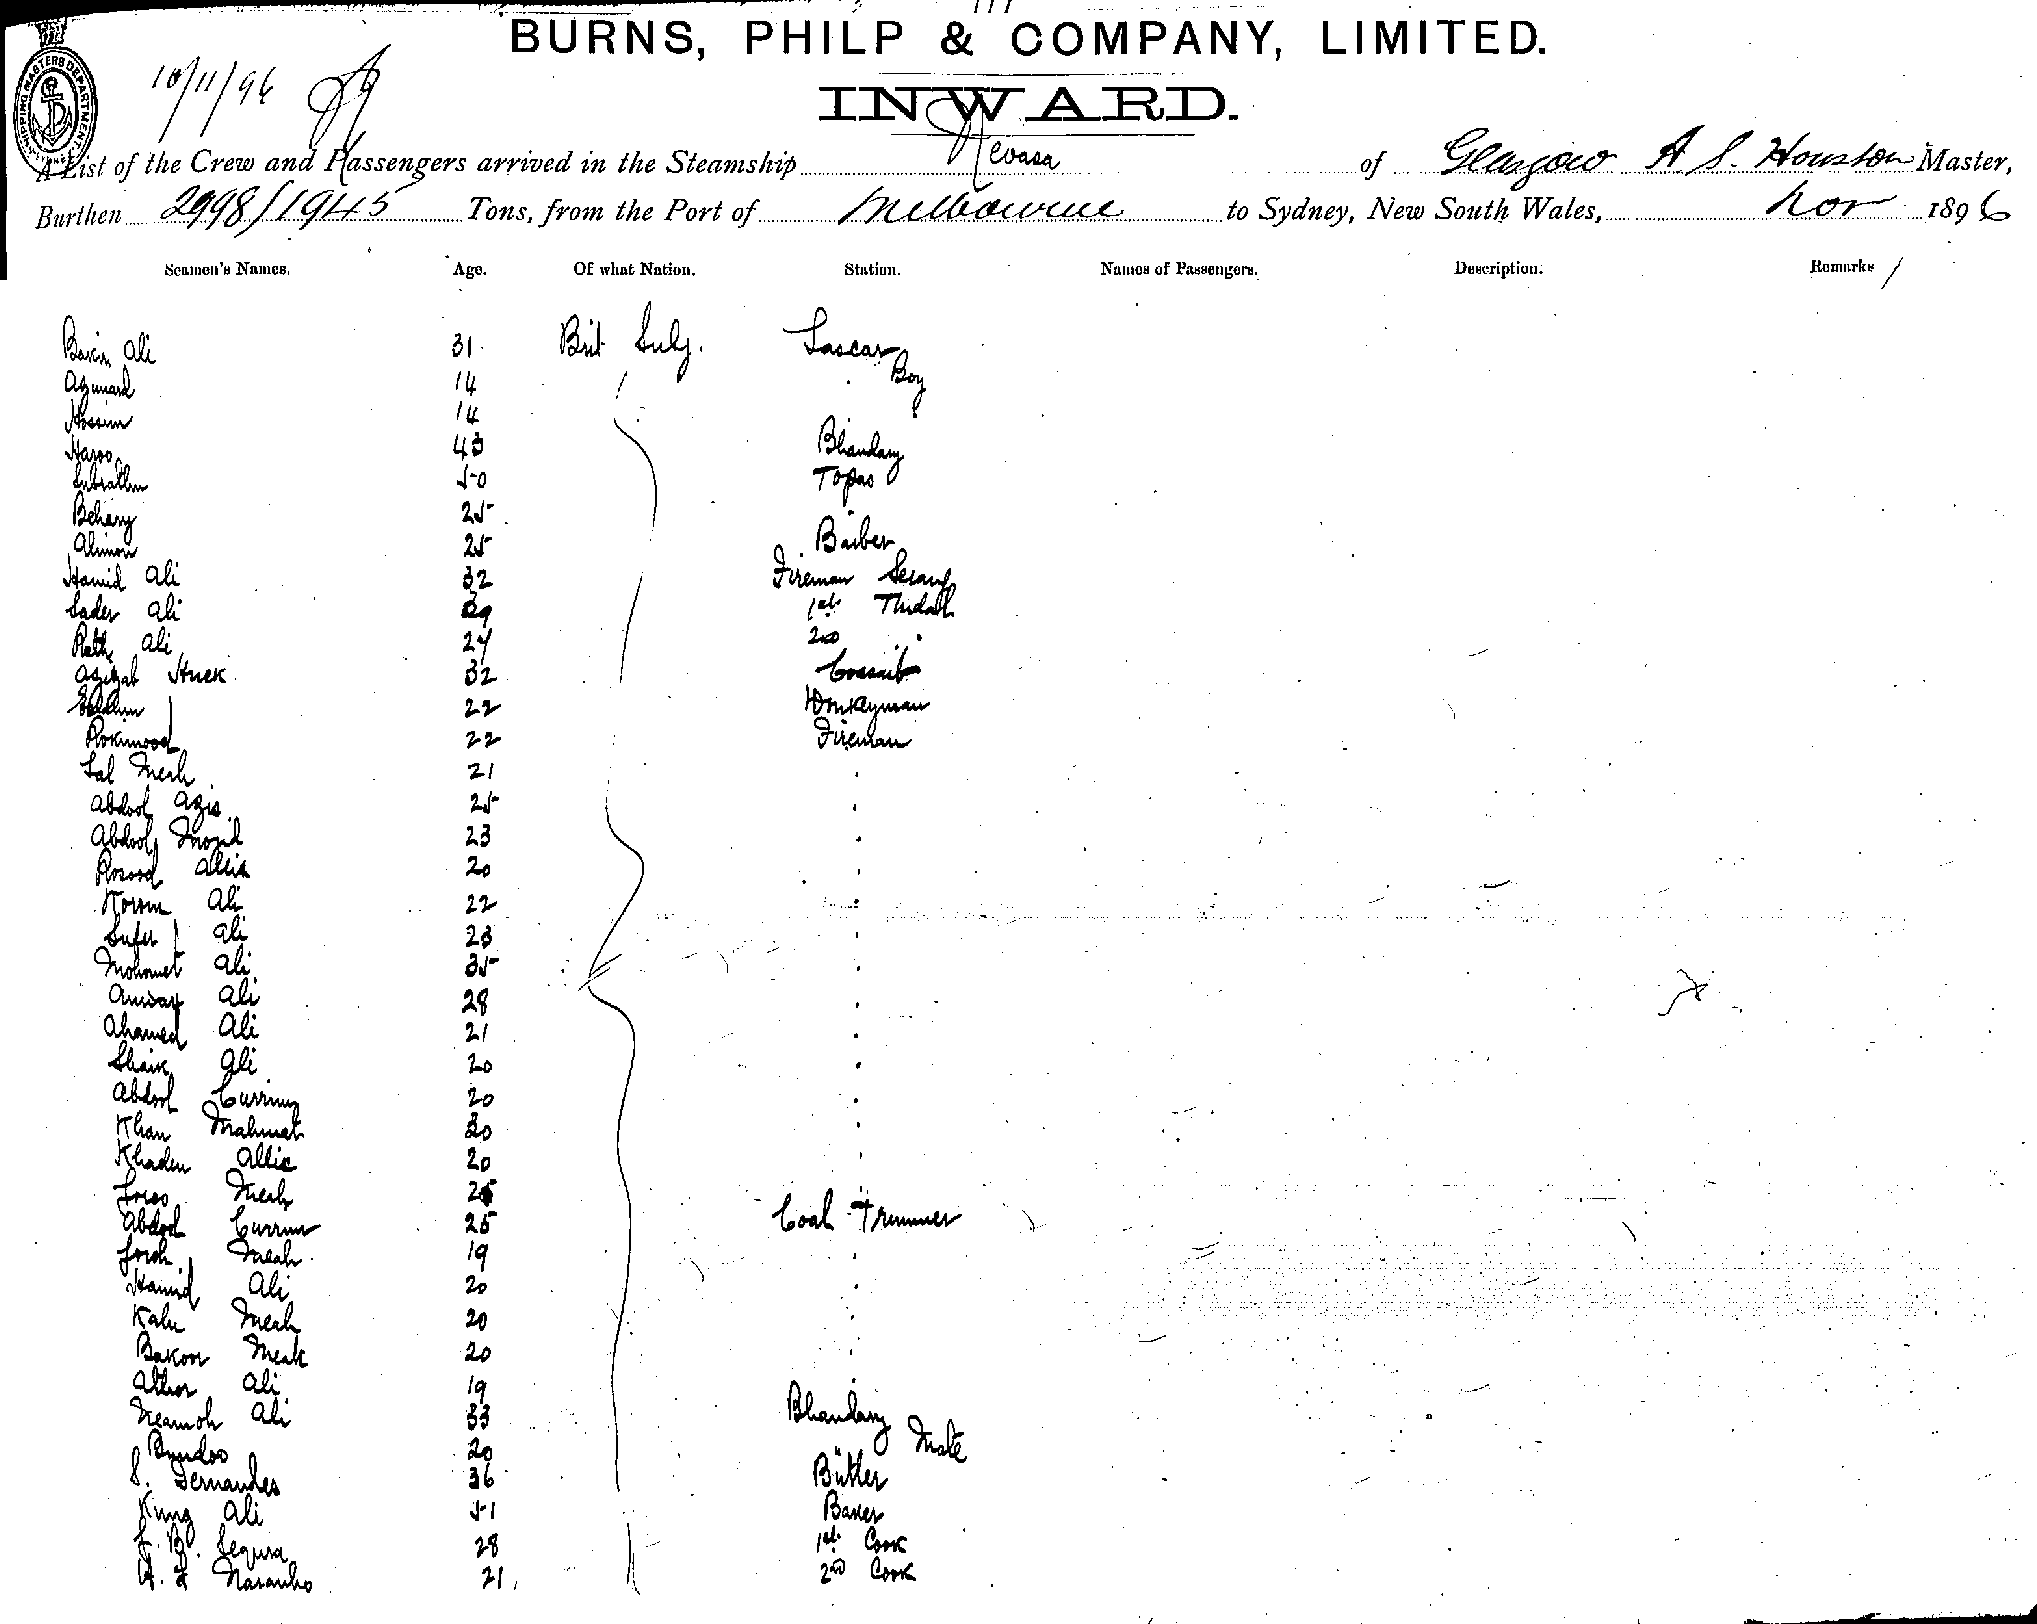 BURNS, PHILP & COMPANY, LIMITED.
INWARD.
10/11/96
SHIPPING MASTERS DEPARTMENT
A List of the Crew and Passengers arrived in the Steamship Nevasa of Glasgow A S. Houston Master,
Burthen 2998/1945 Tons, from the Port of Melbourne to Sydney, New South Wales, Nov 1896
Seamen's Names. Age. Of what Nation. Station. Names of Passengers. Description. Remarks
Ali 31 Brit Subj. Lascar
14 Boy
Hossim 14
Haroo 43 Bhandary
50 Topas
Behary 25
25 Barber
Hamid Ali 32 Fireman Serang
Sader Ali 39 1st Thidall
Ali 27 2nd
Azizal Huck 32 Cossaib
22 Donkeyman
22 Fireman
Lal Meah 21
Abdool Azis 25
Abdool Mozid 23
Rosood Allie 20
Ali 22
Sufer Ali 23
Mohomet Ali 35
Ali 28
Ahamed Ali 21
Shaik Ali 20
Abdool Currim 20
Khan Mahmat 30
Khadem Allie 20
Meah 25
Abdool Currim 25 Coal Trimmer
Meah 19
Hamid Ali 20
Kalu Meah 20
Bakoor Meah 20
Ali 19
Neamoh Ali 33 Bhandary
Bundoo 20 Mate
S. Fernandes 36 Butler
Ali 51 Baker
Segura 28 1st Cook
21 2nd Cook